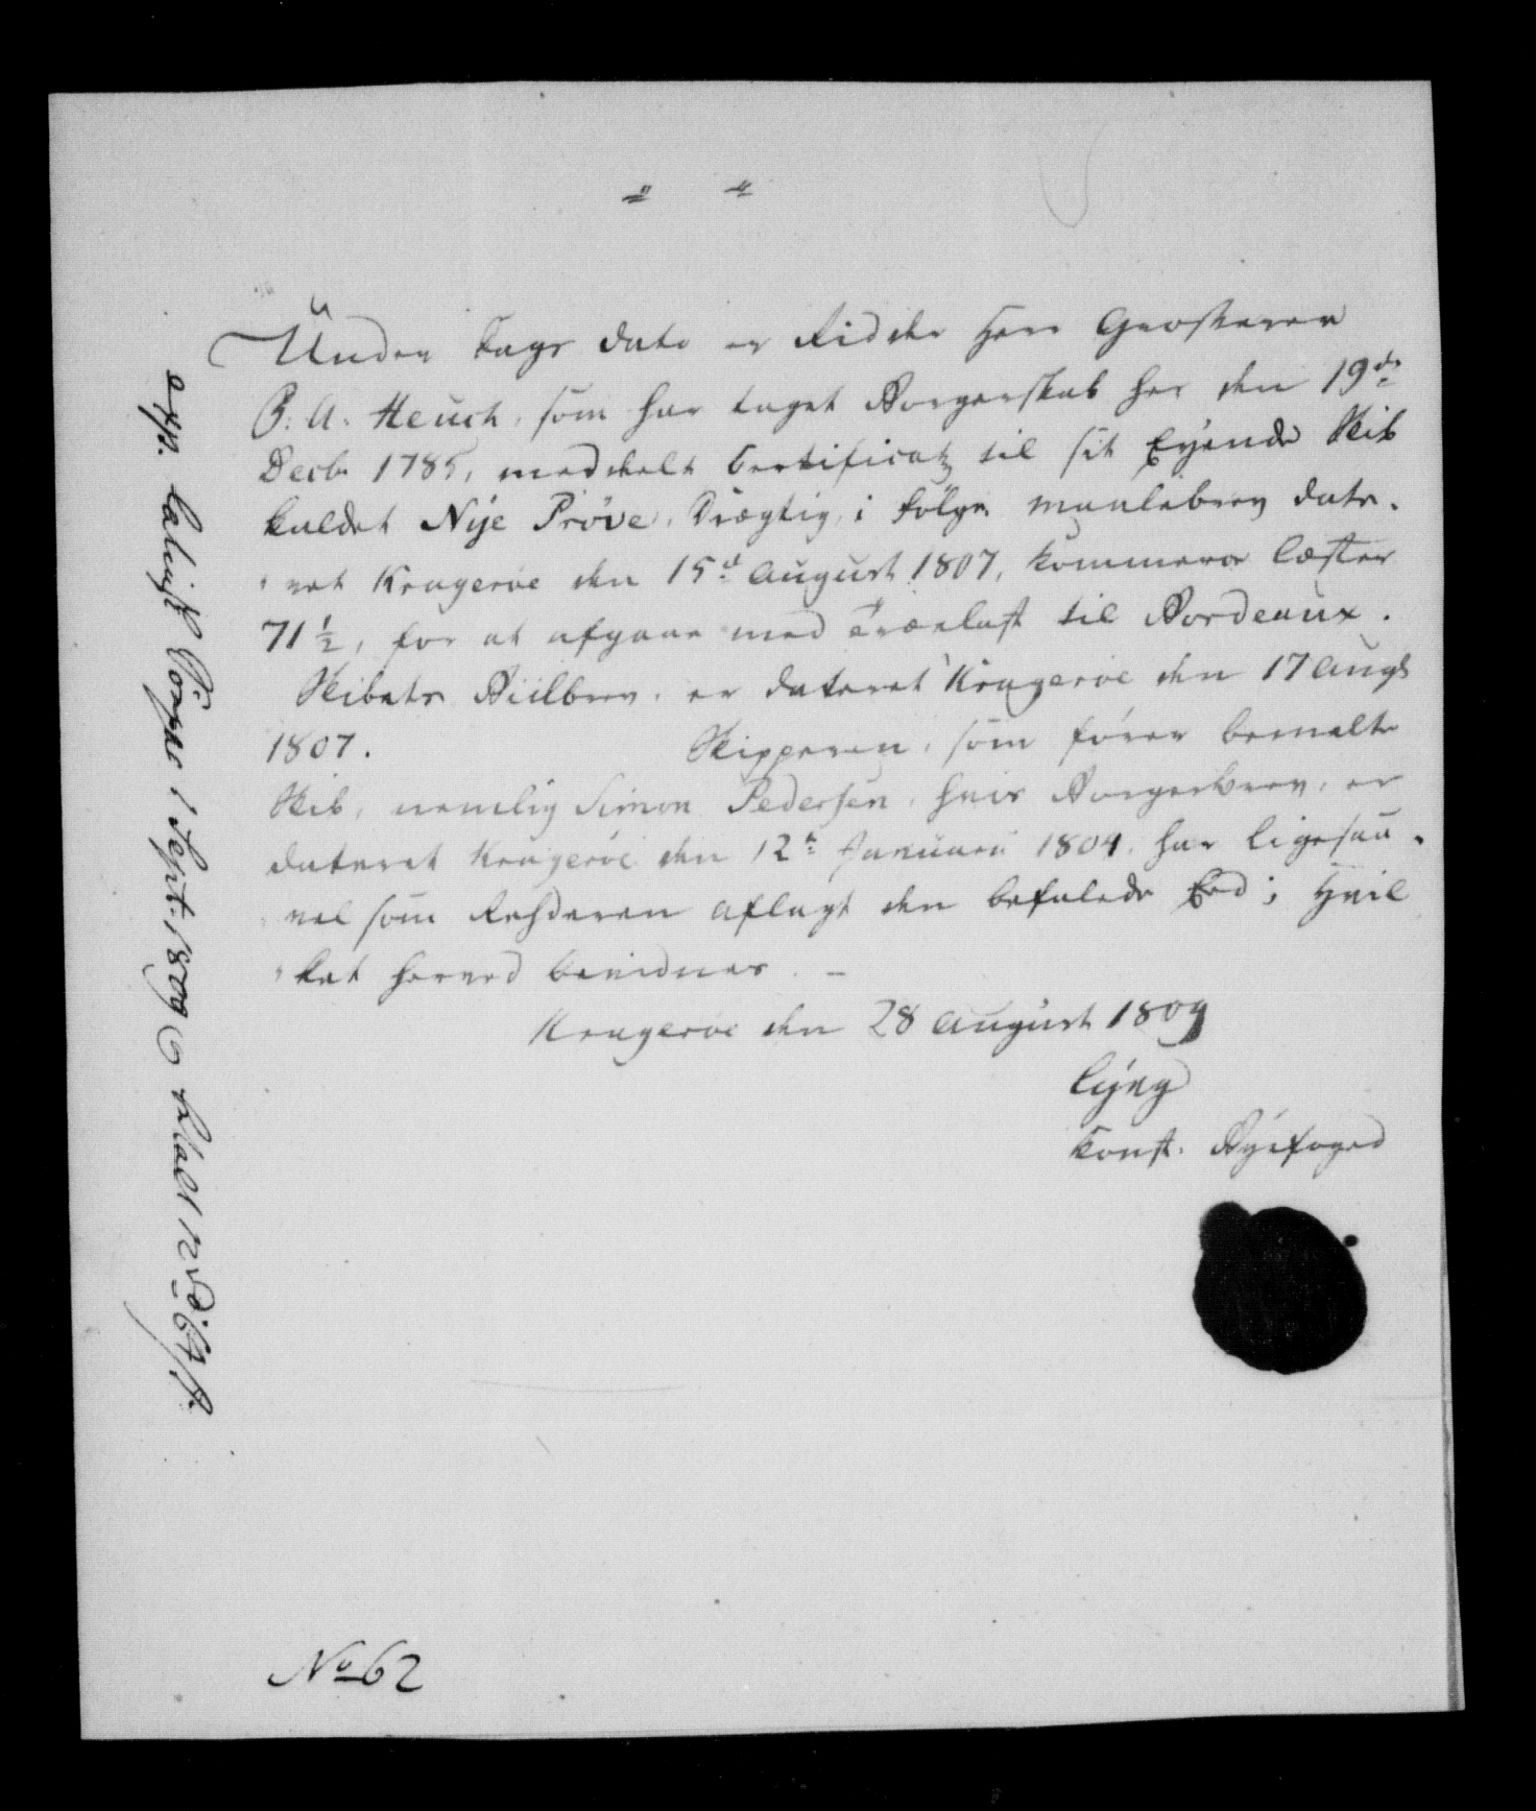 Under Dags Dato er Ridder Herr Grosserer
P: A: Heuch, som har taget Borgerskab her den 19de
Decbr 1785, meddeelt Certificatz til sit Eyende Skib
kaldet Nye Prøve, Drægtig, i følge Maalebrev date-
ret Krageröe den 15de August 1807, Kommerce Læster
71½, for at afgaae med Trælast til Bordeaux.
Skibets Biilbrev, er dateret Krageröe den 17 Augst
1807. Skipperen, som fører bemelte
Skib, nemlig Simon Pedersen, hvis Borgerbrev, er
dateret Krageröe den 12te Januarii 1804, har ligesaa-
vel som Rehderen aflagt den befalede Eed; Hvil
ket herved bevidnes. -
Krageröe den 28 August 1809
Lyng
Const. Byefoged
No 62
exp. 1 Sept. 1809